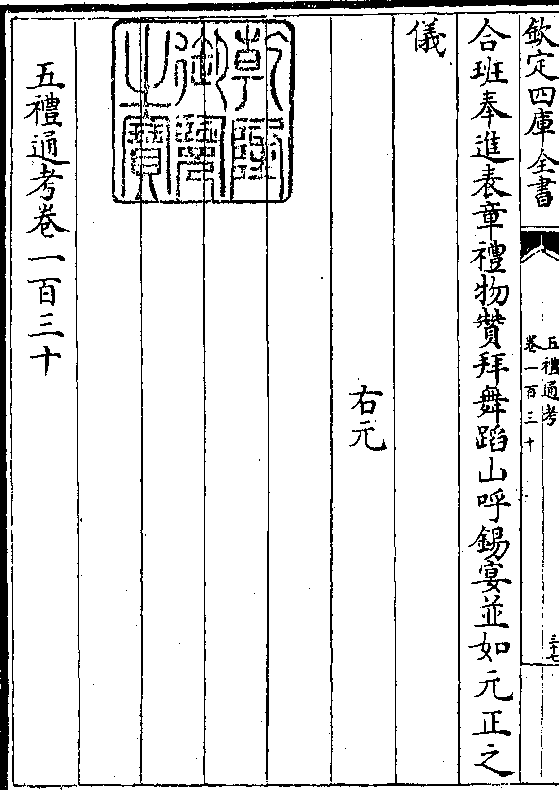 欽定四庫全書
五禮通考
卷一百三十
三十七
合班奉進表章禮物贊拜舞蹈山呼錫宴並如元正之
儀
右元
乾隆御覽之寶
五禮通考卷一百三十